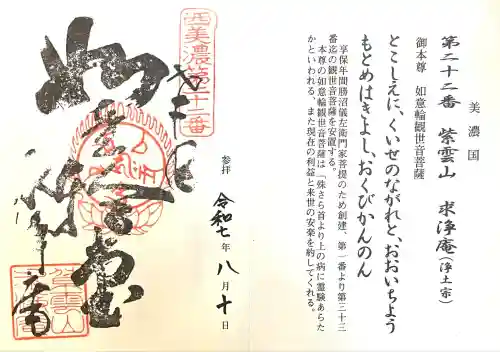 美濃国
第二十二番 紫雲山 求浄庵(浄土宗)
御本尊 如意輪観世音菩薩
とこしえに、くいぜのながれと、おおいちよう
もとめはきよし、おくびかんのん
享保年間勝沼儀左衛門家菩提のため創建、第一番より第三十三
番迄の観世音菩薩を安置する。
本尊の如意輪観世音菩薩は「殊さら首より上の病に霊験あらた
かといわれる、また現在の利益と来世の安楽を約してくれる。
参拝 令和七年八月十日
西美濃第二十二番
紫雲山